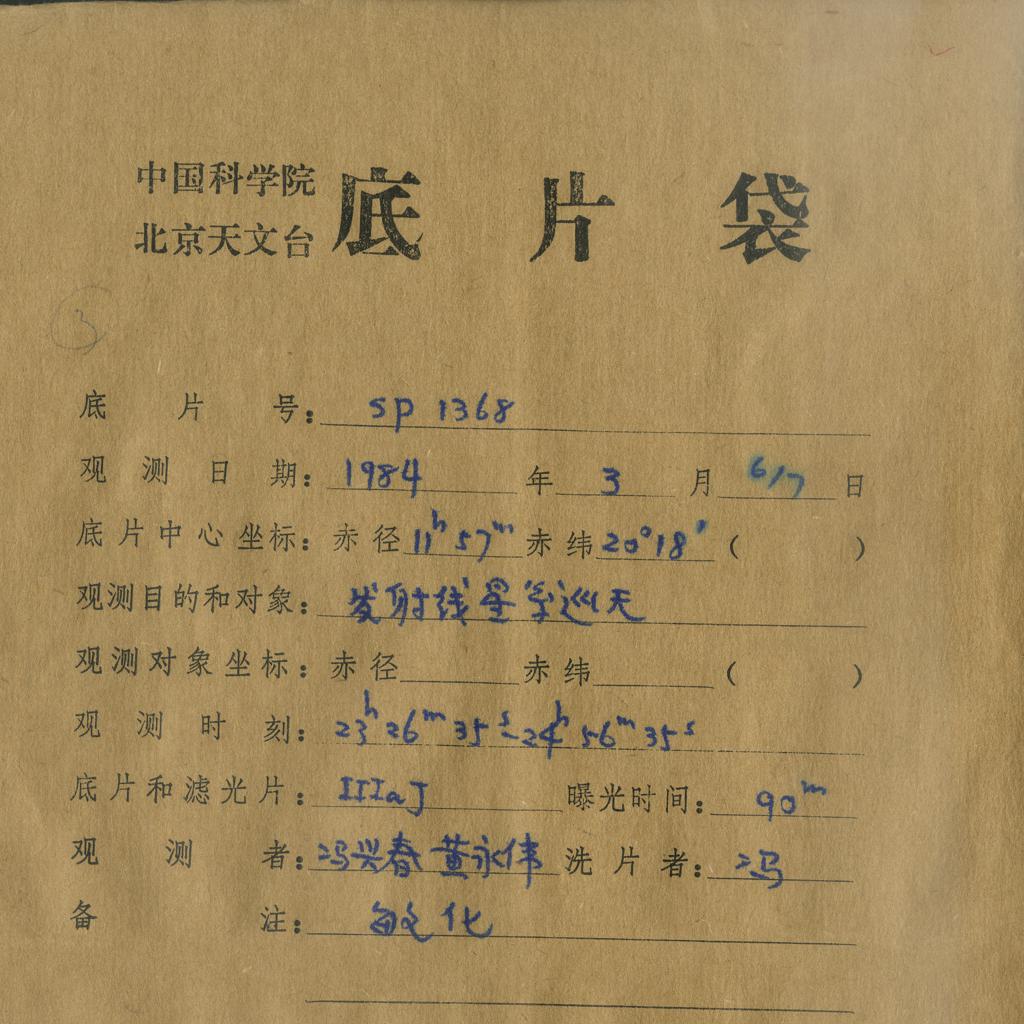 中国科学院
北京天文台
底片袋
③
底片号: sp 1368
观测日期: 1984 年 3 月 6/7 日
底片中心坐标: 赤径 11ʰ 57ᵐ 赤纬 20°18′ ( )
观测目的和对象: 发射线星系巡天
观测对象坐标: 赤径 赤纬 ( )
观测时刻: 23ʰ 26ᵐ 35ˢ-24ʰ 56ᵐ 35ˢ
底片和滤光片: IIIaJ 曝光时间: 90ᵐ
观测者: 冯兴春 黄永伟 洗片者: 冯
备注: 敏化